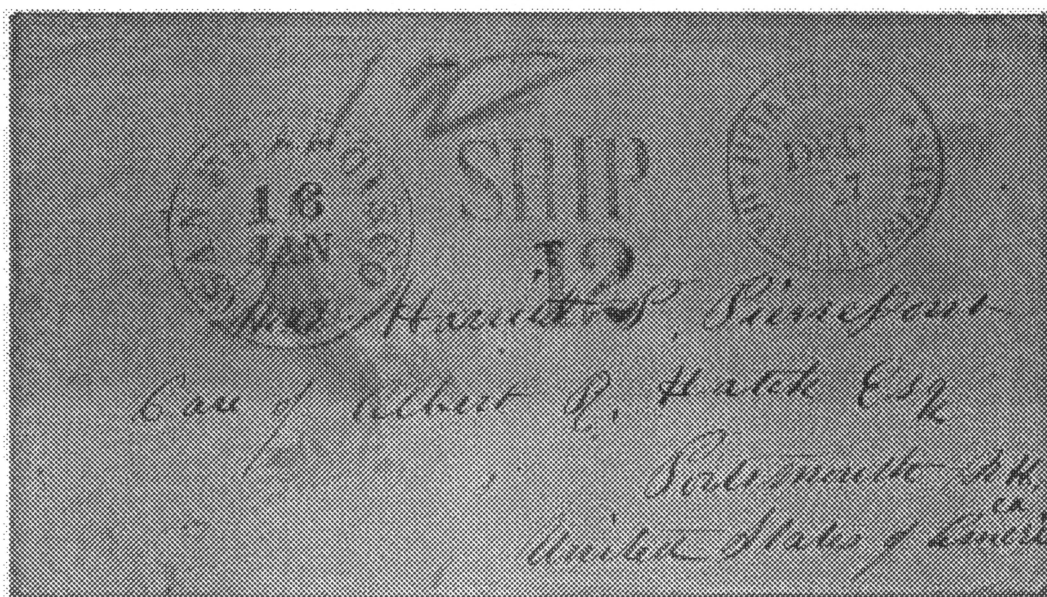 2
SHIP
12
SAN FRANCISCO
16
JAN
DEC
Miss Harriett P. Pierrepont
Care of Albert R. Hatch Esq
Portsmouth N.H.
United States of America